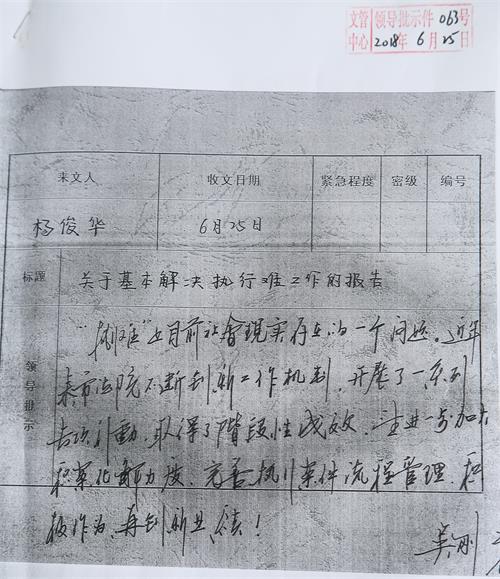 文管 领导批示件 063号
中心 2018年6月25日
来文人 收文日期 紧急程度 密级 编号
杨俊华 6月25日
标题 关于基本解决执行难工作的报告
领导批示
"执行难"是目前社会现实存在的一个问题。近年
来市法院不断创新工作机制，开展了一系列
专项行动，取得了阶段性成效。望进一步加大
积案化解力度，完善执行案件流程管理，积
极作为，再创新业绩！
吴刚